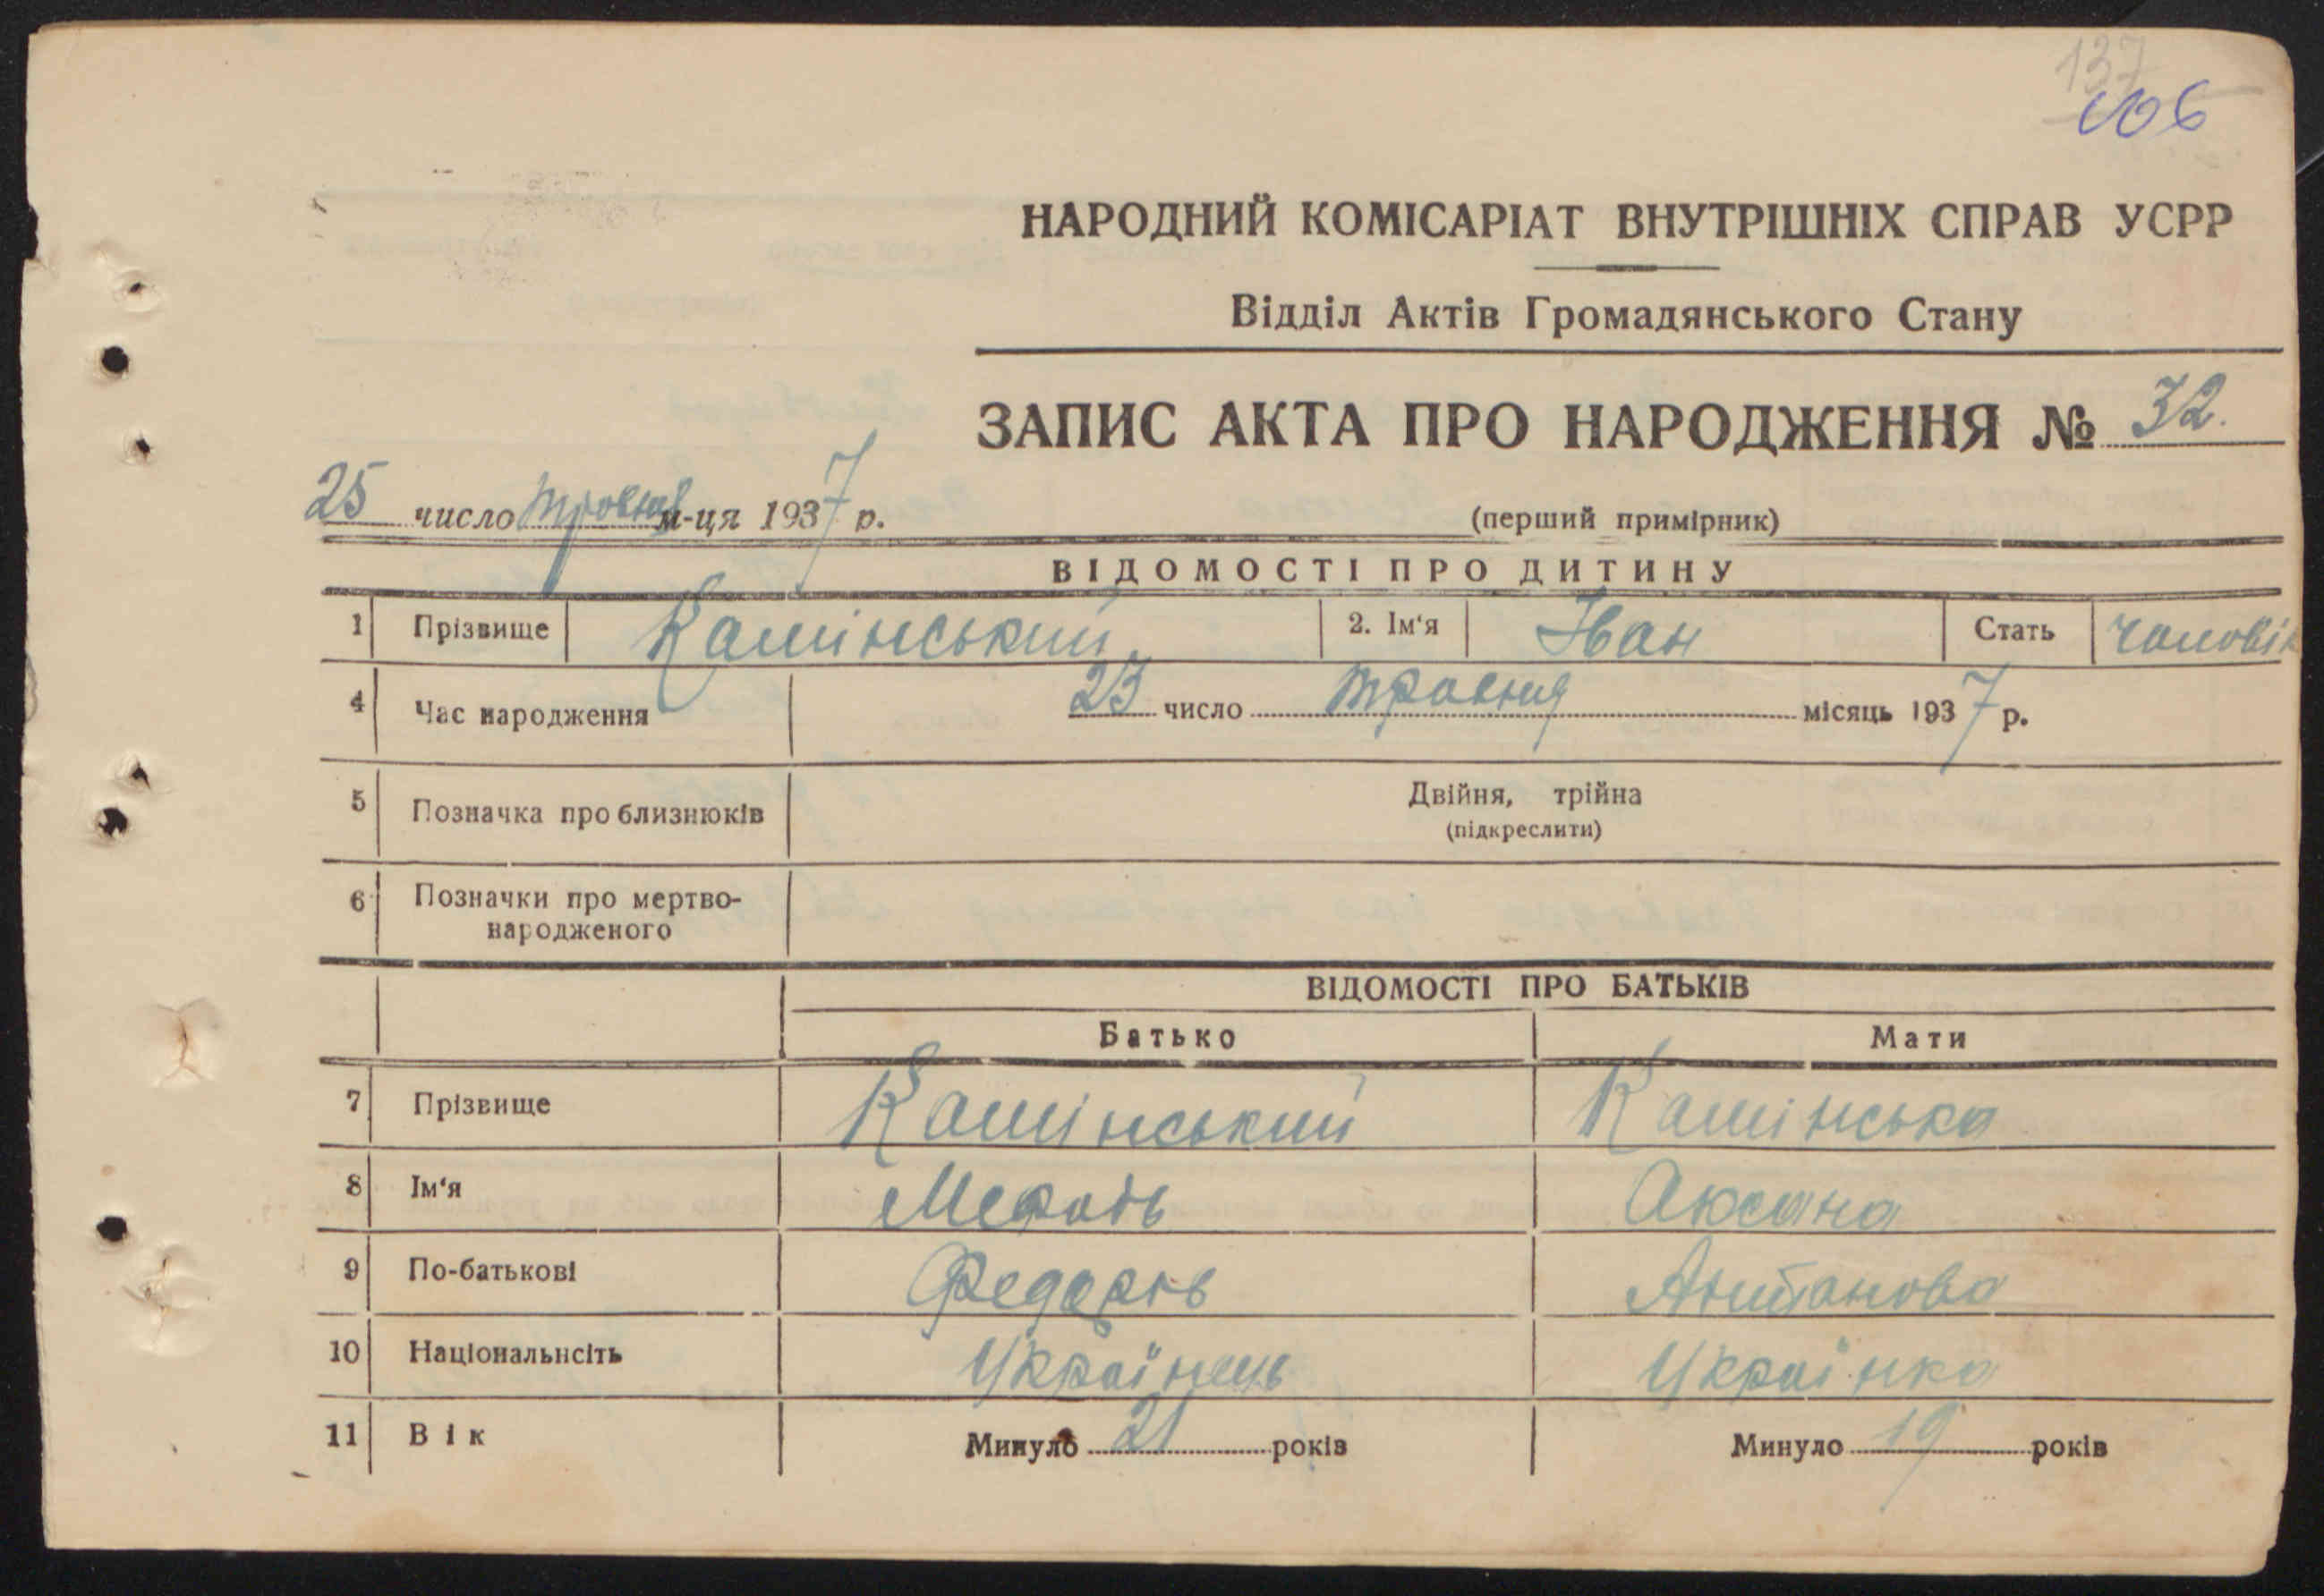 137
106
НАРОДНИЙ КОМІСАРІАТ ВНУТРІШНІХ СПРАВ УСРР
Відділ Актів Громадянського Стану
ЗАПИС АКТА ПРО НАРОДЖЕННЯ № 32.
25 число травня м-ця 1937 р.
(перший примірник)
ВІДОМОСТІ ПРО ДИТИНУ
1 Прізвище Камінський 2. Ім'я Іван Стать чоловік
4 Час народження 23 число травня місяць 1937 р.
5 Позначка про близнюків Двійня, трійна
(підкреслити)
6 Позначки про мертво-
народженого
ВІДОМОСТІ ПРО БАТЬКІВ
Батько Мати
7 Прізвище Камінський Камінська
8 Ім'я Аксана
9 По-батькові Антанова
10 Національнсіть Українець Українка
11 Вік Минуло 21 років Минуло 19 років